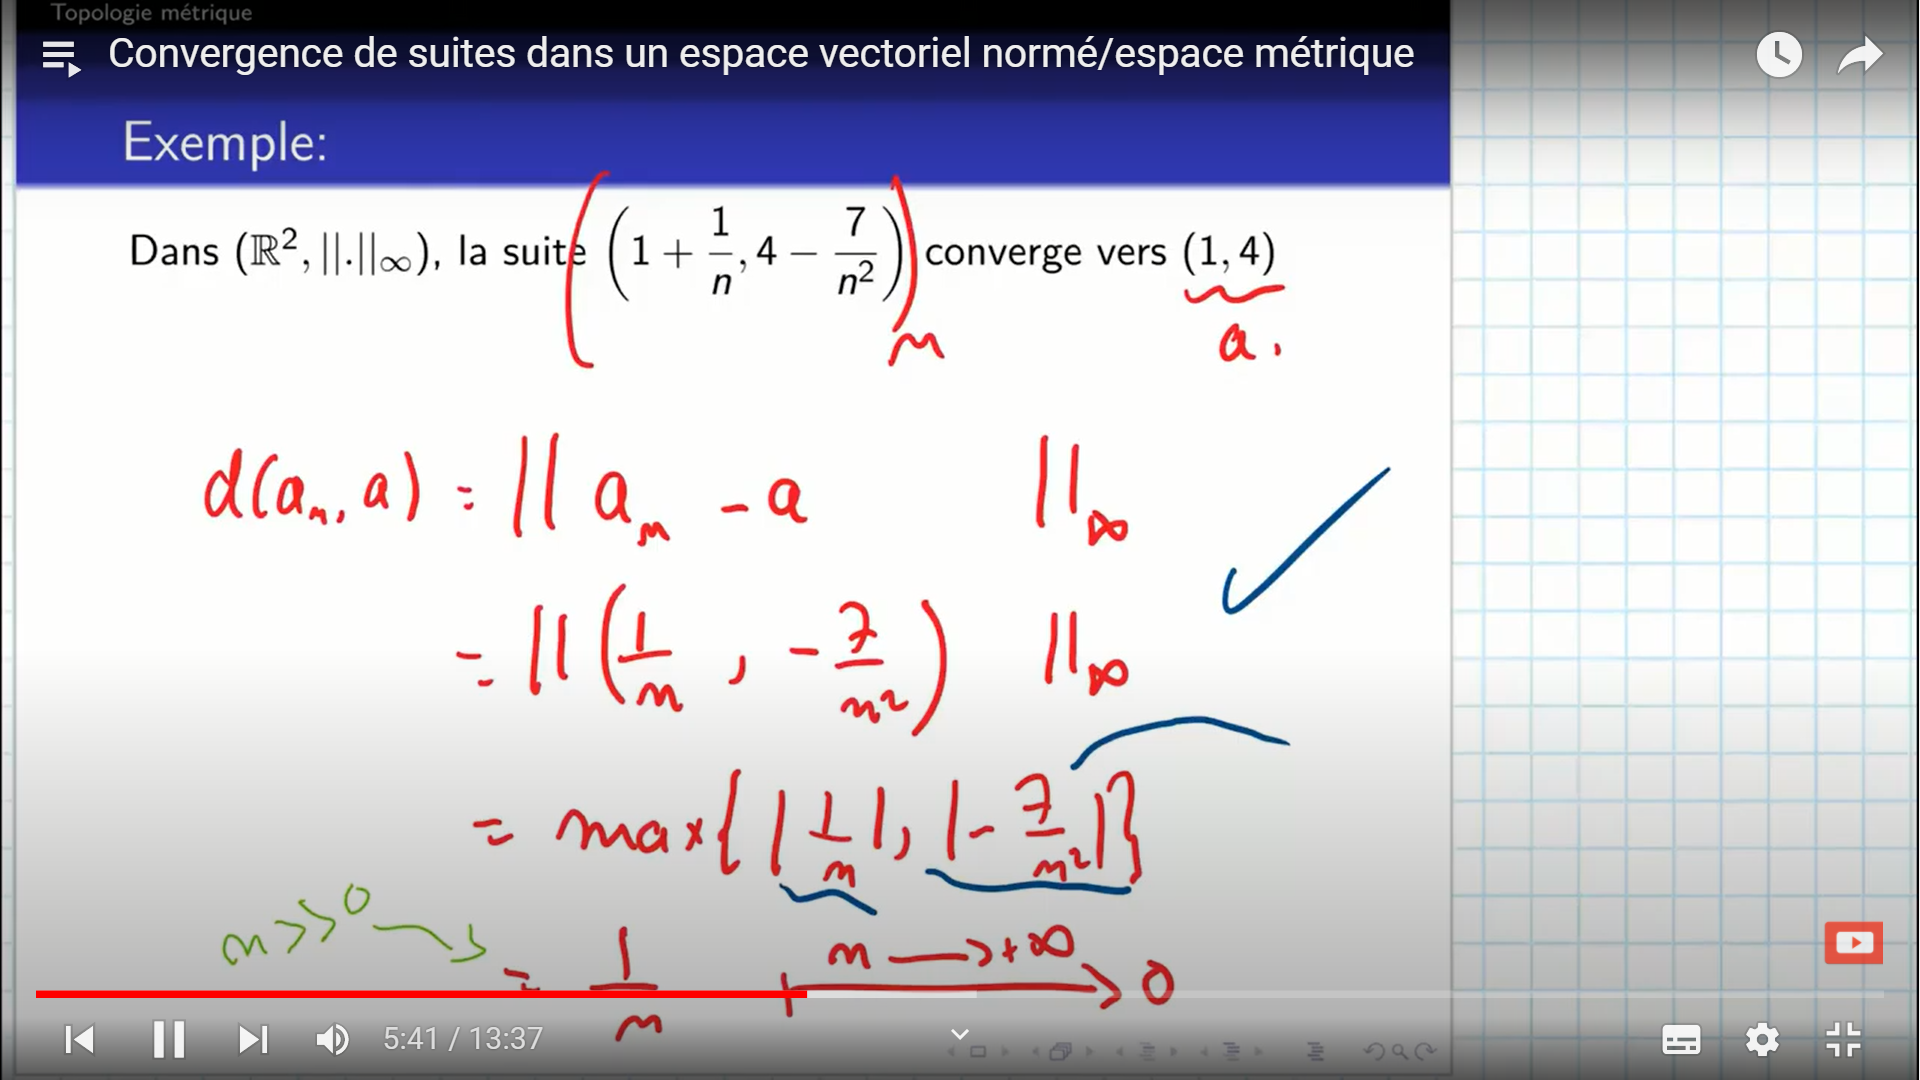 Topologie métrique
Convergence de suites dans un espace vectoriel normé/espace métrique
Exemple:
Dans (ℝ², ||.||∞), la suite ((1 + 1/n, 4 − 7/n²))n converge vers (1, 4)
a.
d(an, a) = || an - a ||∞
= || (1/n, -7/n²) ||∞
= max{ |1/n|, |-7/n²| }
n>>0
= 1/n n → +∞ → 0
5:41 / 13:37